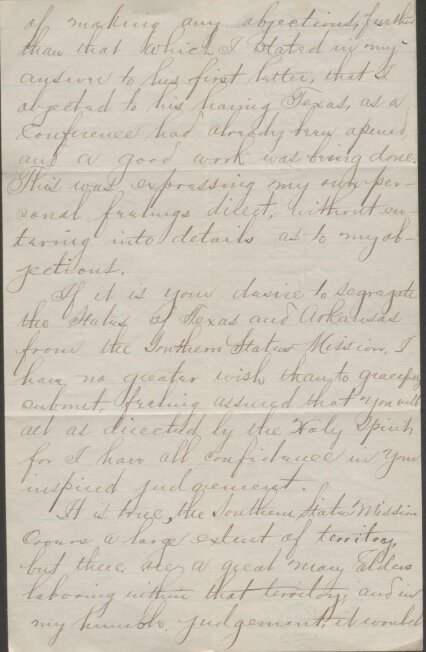 of making any objections, further
than that which I stated in my
answer to his first letter, that I
objected to his having Texas, as a
Conference had already been opened,
and a good work was being done.
This was expressing my own per-
sonal feelings direct, without en-
tering into details as to my ob-
jections.
If it is your desire to segragate
the States of Texas and Arkansas
from the Southern States Mission, I
have no greater wish than to gracefully
submit, feeling assured that you will
act as directed by the Holy Spirit,
for I have all confidence in your
inspired judgement.
It is true, the Southern States Mission
Covers a large extent of territory,
but there are a great many Elders
laboring within that territory, and in
my humble judgement, it would